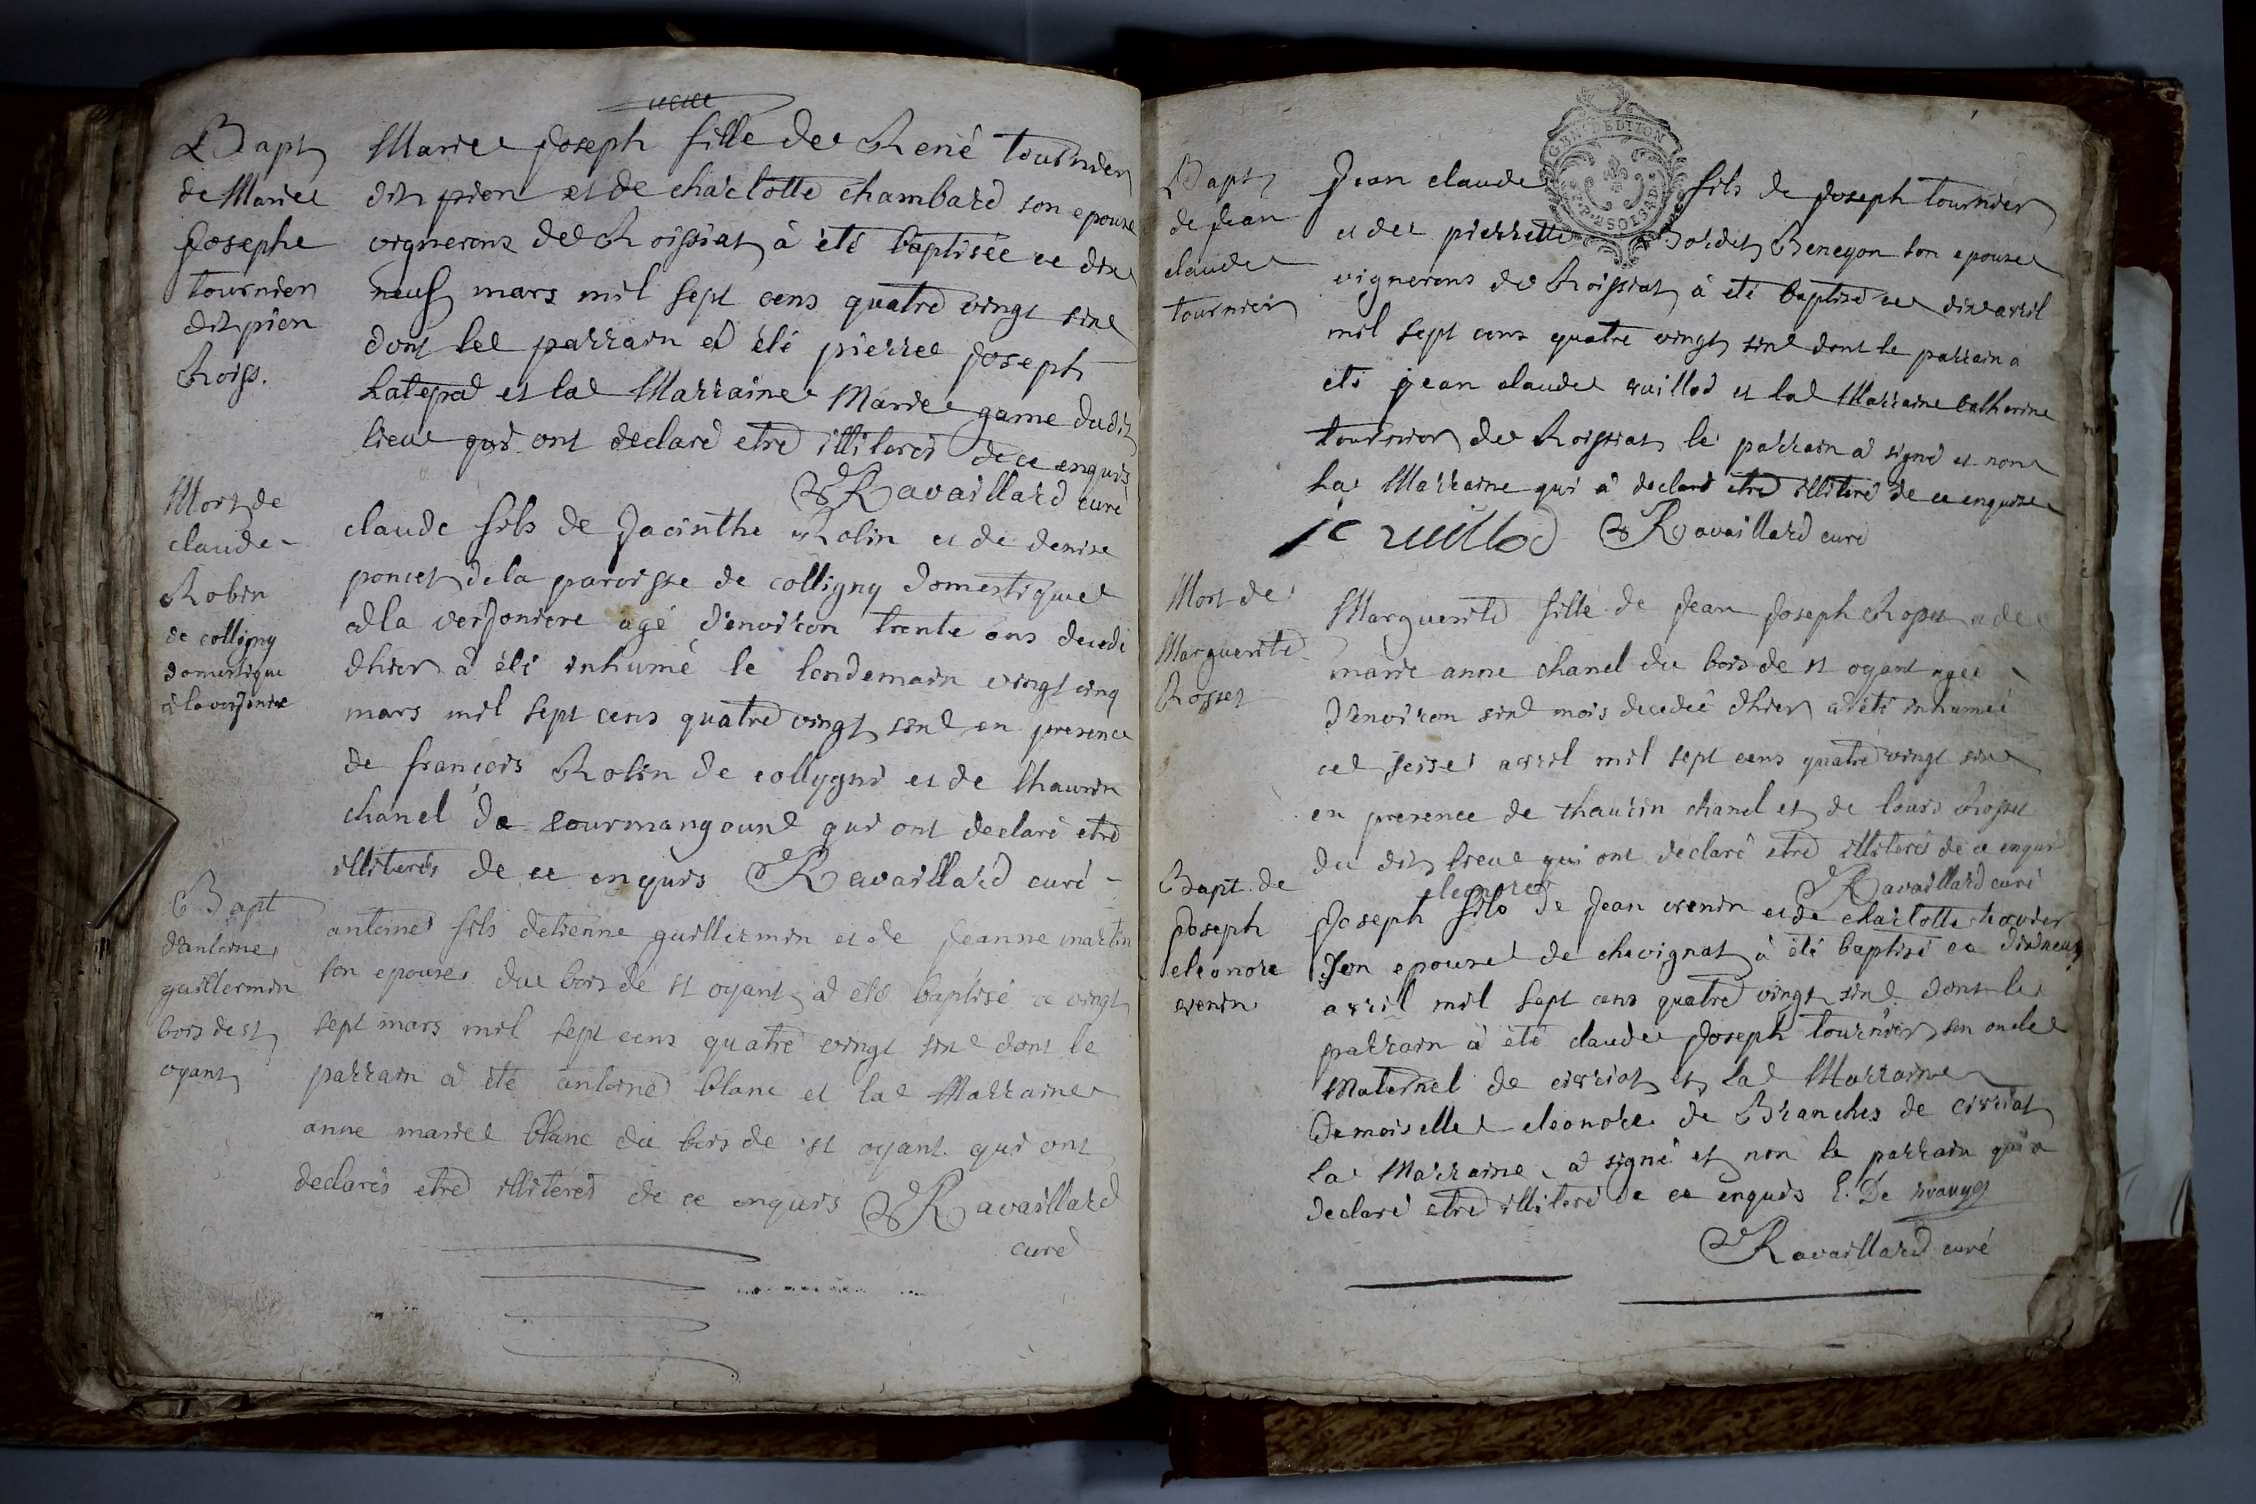 Bapt
de Marie
Josephe
tournier
dit pion
Roiss.
Marie Joseph fille de René tournier
dit pion et de charlotte chambard son epouse
vignerons de Roissiat à été baptisée ce dix
neuf mars mil sept cens quatre vingt six
dont le parrain a été pierre Joseph
et la Marraine Marie game dudit
lieu qui ont declaré etre illiterés de ce enquis
Ravaillard curé
Mort de
claude
Robin
de colligny
domestique
à la verjoniere
claude fils de Jacinthe Robin et de denise
poncet de la paroisse de colligny domestique
à la verjoniere agé d'environ trente ans decedé
dhier à été inhumé le lendemain vingt cinq
mars mil sept cens quatre vingt six en presence
de françois Robin de collygni et de thaurin
chanel de courmangoux qui ont declaré etre
illiterés de ce enquis Ravaillard curé
Bapt
d'antoine
guillermin
bois de st
oyant
antoine fils detienne guillermin et de Jeanne martin
son epouse du bois de st oyant a été baptisé ce vingt
sept mars mil sept cens quatre vingt six dont le
parrain a été antoine blanc et la Marraine
anne marie blanc du bois de st oyant qui ont
declarés etre illiterés de ce enquis Ravaillard
curé
GEN. DE DIJON
Bapt
de Jean
claude
tournier
Jean claude fils de Joseph tournier
et de pierrette Bordet Benegon son epouse
vignerons de Roissiat à été baptisé ce dix avril
mil sept cens quatre vingt six dont le parrain a
été jean claude vuillod et la Marraine catherine
tournier de Roissiat le parrain a signé et non
La Marraine qui à declaré etre illiteré de ce enquise
jc vuillod Ravaillard curé
Mort de
Marguerite
Rosset
Marguerite fille de Jean Joseph Rosset et de
marie anne chanel du bois de st oyant agée
d'environ six mois decedée dhier a été inhumée
ce seise avril mil sept cens quatre vingt six
en presence de thaurin chanel et de louis Rosset
du dit lieu qui ont declaré etre illiterés de ce enquis
Ravaillard curé
Bapt. de
Joseph
eleonore
venin
eleonore
Joseph fils de Jean venin et de charlotte tournier
son epouse de chevignat à été baptisé ce dixneuf
avril mil sept cens quatre vingt six dont le
parrain à été claude Joseph tournier son oncle
Maternel de civriat et La Marraine
demoiselle eleonore de Branches de civriat
La Marraine a signé et non le parrain qui a
declaré etre illiteré de ce enquis E. De
Ravaillard curé